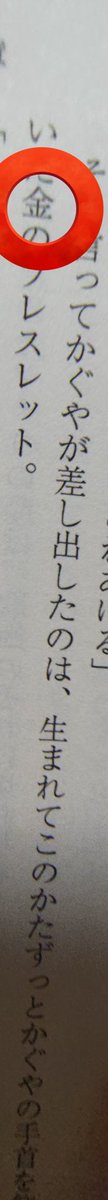 をあげる」
言ってかぐやが差し出したのは、生まれてこのかたずっとかぐやの手首を
い 金の ブレスレット。